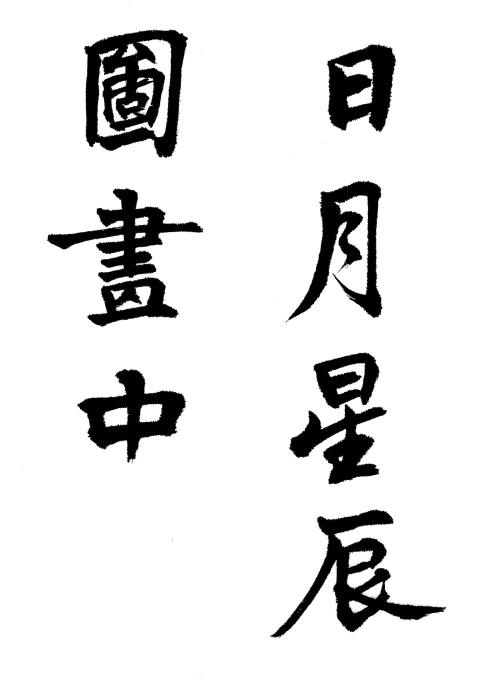 日月星辰
圖畫中